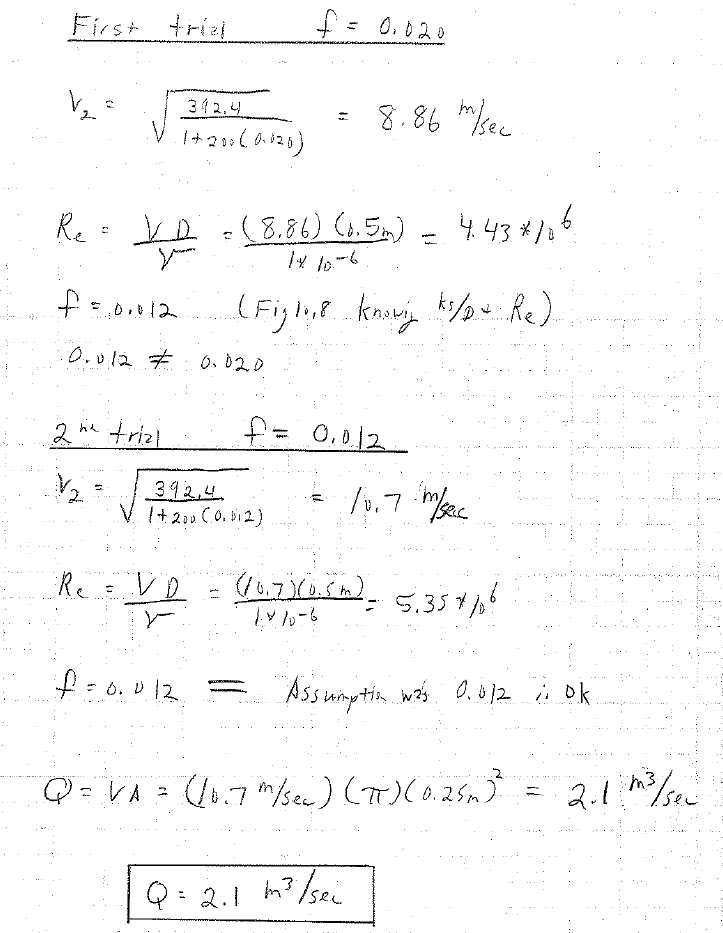 First trial f = 0.020
V₂ = √(392.4 / (1+200(0.020))) = 8.86 m/sec
Re = VD/ν = (8.86)(0.5m) / 1x10⁻⁶ = 4.43 * 10⁶
f = 0.012 (Fig 10.8 knowing ks/D & Re)
0.012 ≠ 0.020
2nd trial f = 0.012
V₂ = √(392.4 / (1+200(0.012))) = 10.7 m/sec
Re = VD/ν = (10.7)(0.5m) / 1x10⁻⁶ = 5.35 * 10⁶
f = 0.012 = Assumption was 0.012 is ok
Q = VA = (10.7 m/sec)(π)(0.25m)² = 2.1 m³/sec
Q = 2.1 m³/sec